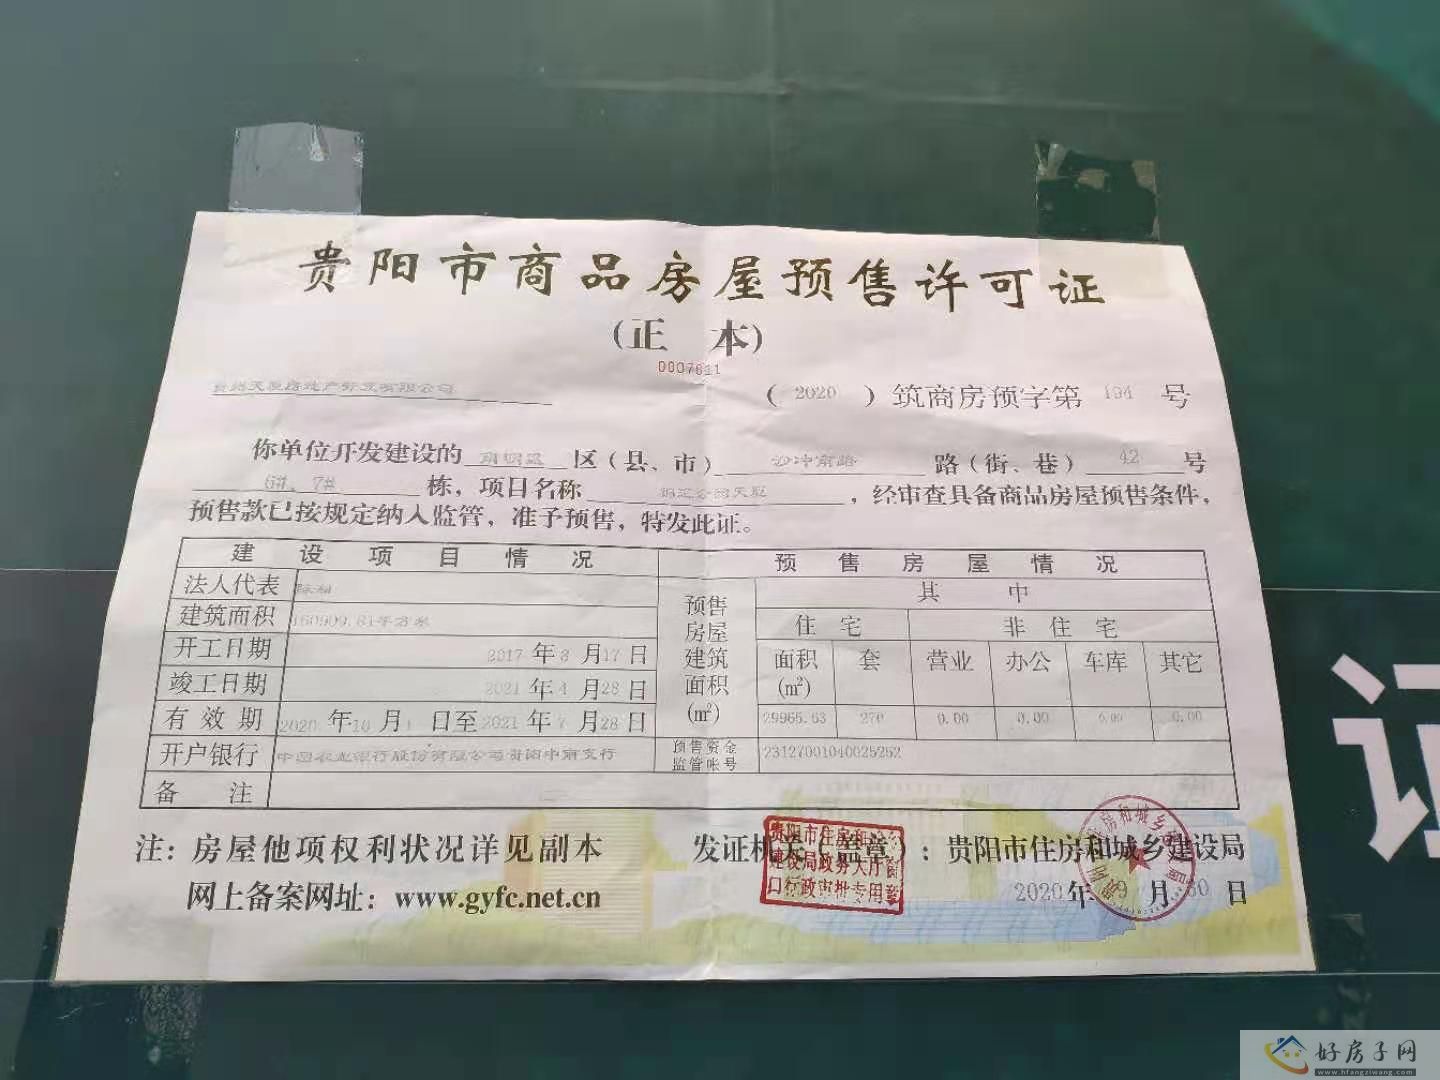 贵阳市商品房屋预售许可证
(正 本)
0007811
房地产开发有限公司
( 2020 ) 筑商房预字第 194 号
你单位开发建设的 南明区 区(县、市) 沙冲南路 路(街、巷) 42 号
6#、7# 栋,项目名称 天玺 ,经审查具备商品房屋预售条件,
预售款已按规定纳入监管,准予预售,特发此证。
建设项目情况 预售房屋情况
法人代表
预售房屋建筑面积(㎡) 其中
建筑面积 160909.81平方米 住宅 非住宅
开工日期 2017年3月17日 面积(㎡) 套 营业 办公 车库 其它
竣工日期 2021年4月28日
有效期 2020年10月1日至2021年4月28日 29965.63 270 0.00 0.00 0.00 0.00
开户银行 中国农业银行股份有限公司贵阳中南支行 预售资金监管帐号 23127001040025262
备注
注:房屋他项权利状况详见副本 发证机关(盖章):贵阳市住房和城乡建设局
网上备案网址:www.gyfc.net.cn 2020年9月30日
贵阳市住房和城乡
建设局政务大厅窗
口行政审批专用章
证
好房子网
www.hfangziwang.com